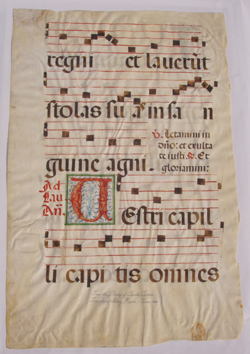 regni et laverūt
stolas su as in sa n
℣. Letamini in
dño: et exulta
te iusti. ℟. Et
gloriamini:
guine agni.
Ad
Lau.
Añ.
Vestri capil
li capi tis omnes